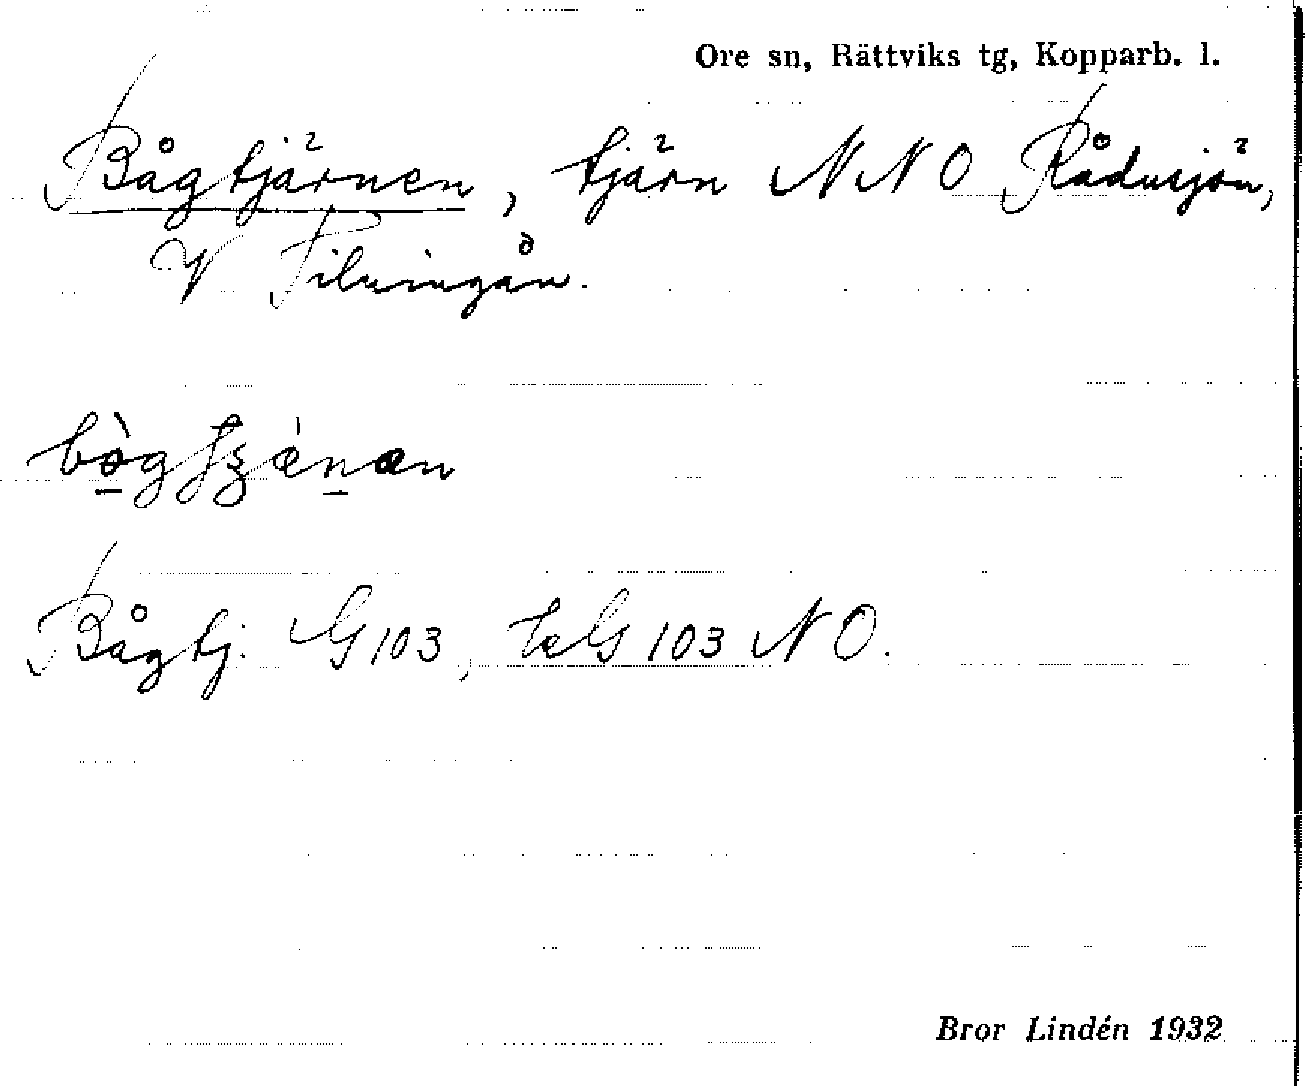 Ore sn, Rättviks tg, Kopparb. l.
Bågtjärnen, tjärn NNO Rådusjön,
V Pilmingån.
Bågtj. G103, G103 NO.
Bror Lindén 1932